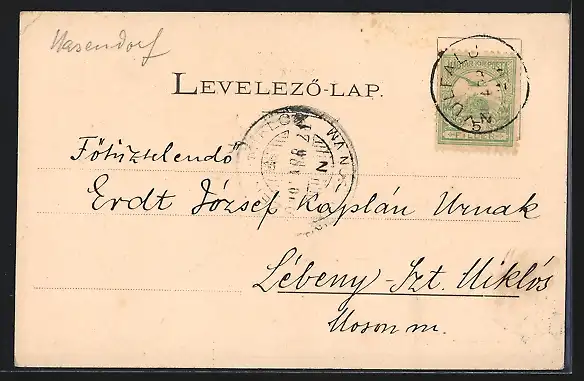 Wasendorf
LEVELEZŐ-LAP.
Főtisztelendő
Erdt József Kaplán Urnak
Lébeny-Szt. Miklós
Moson m.